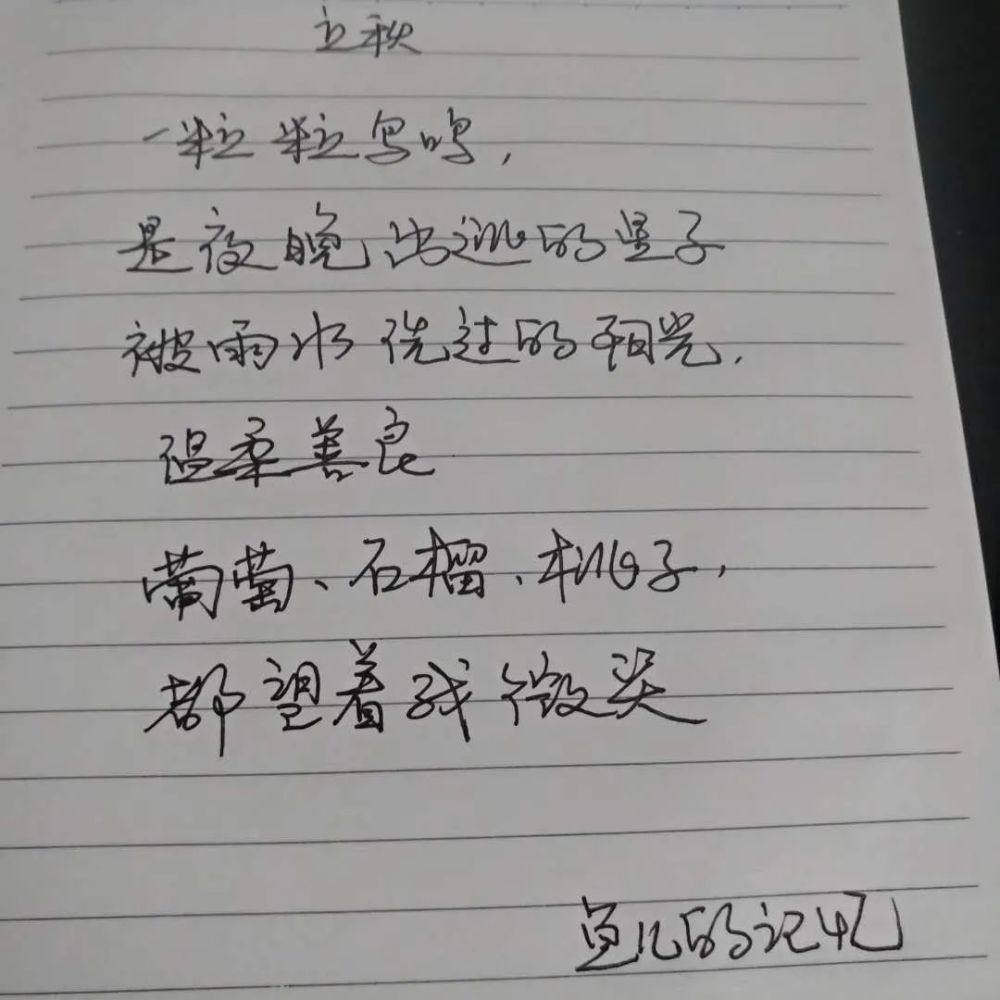 立秋
一粒粒鸟鸣,
是夜晚出逃的星子
被雨水洗过的阳光,
温柔善良
葡萄、石榴、桃子,
都望着我微笑
鱼儿的记忆